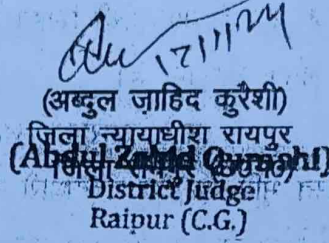 17/11/24
(अब्दुल ज़ाहिद कुरैशी)
जिला न्यायाधीश रायपुर
(Abdul Zahid Qureshi)
District Judge
Raipur (C.G.)